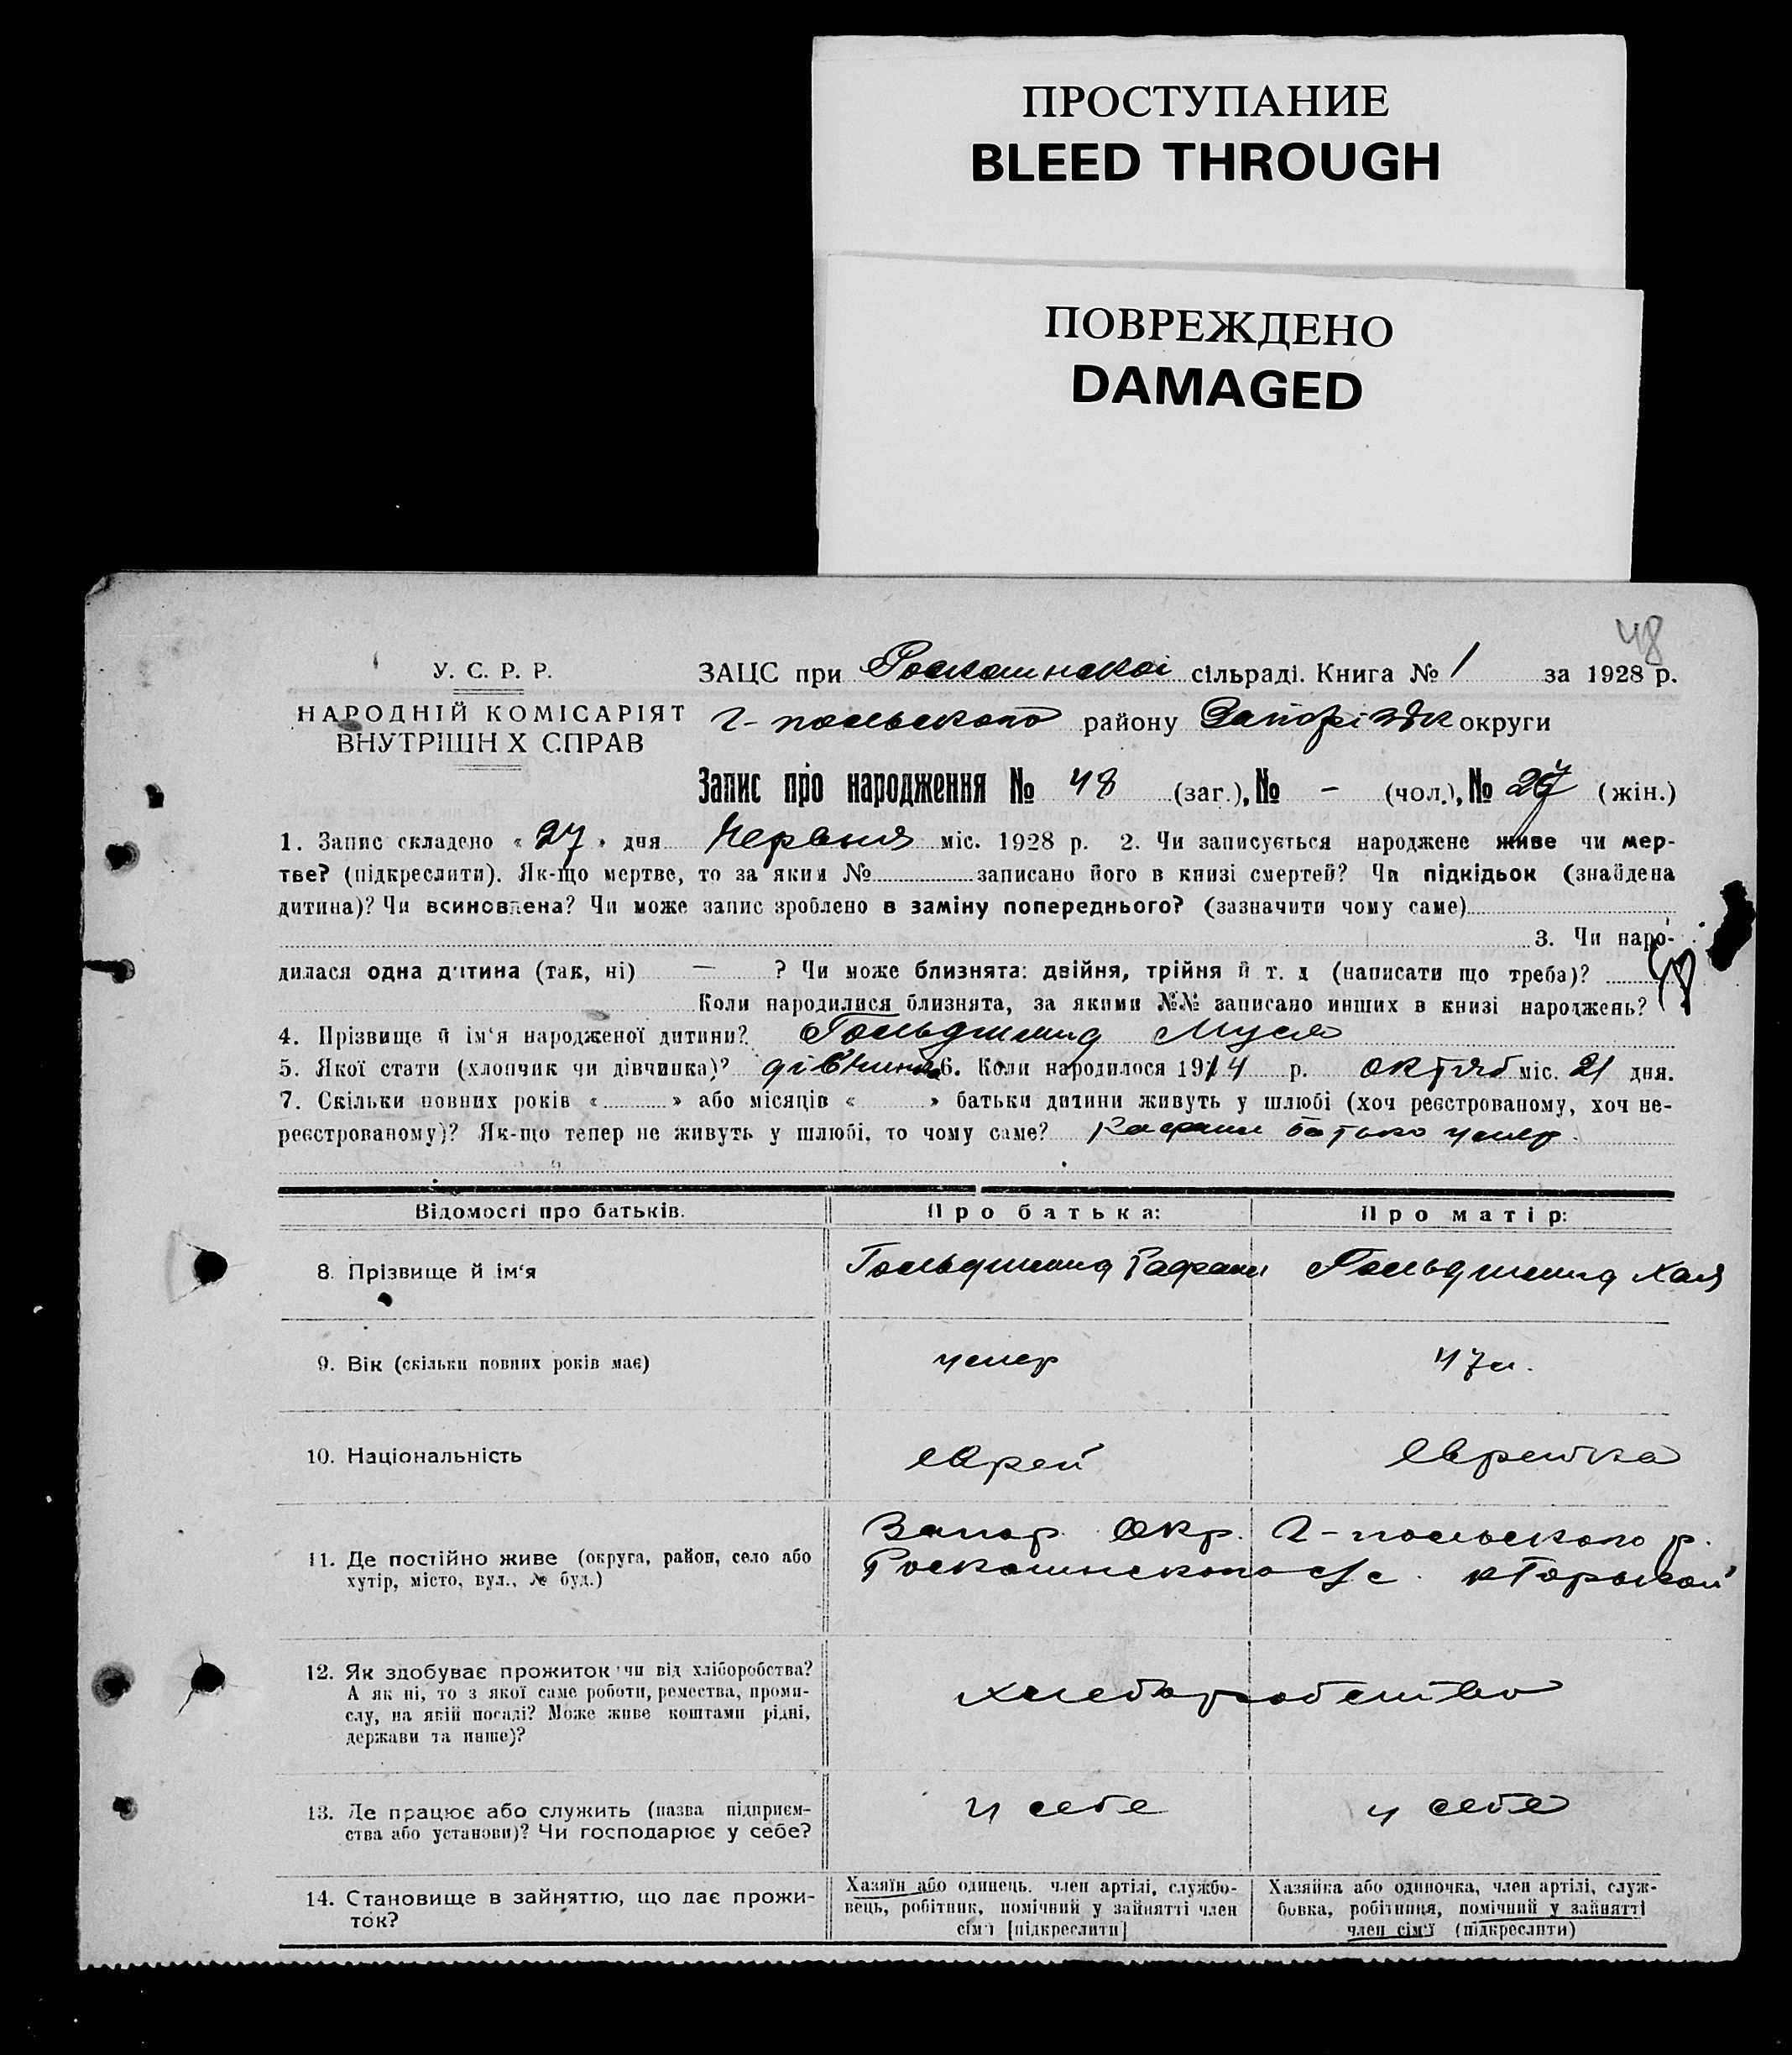 ПРОСТУПАНИЕ
BLEED THROUGH
ПОВРЕЖДЕНО
DAMAGED
48
У. С. Р. Р.
НАРОДНІЙ КОМІСАРІЯТ
ВНУТРІШН Х СПРАВ
ЗАЦС при Роскошнскоі сільраді. Книга № 1 за 1928 р.
г-польского району Запорізьк округи
Запис про народження № 48 (заг.), № – (чол.), № 27 (жін.)
1. Запис складено « 27 » дня Червня міс. 1928 р. 2. Чи записується народжене живе чи мер-
тве? (підкреслити). Як-що мертве, то за яким № записано його в книзі смертей? Чи підкідьок (знайдена
дитина)? Чи всиновлена? Чи може запис зроблено в заміну попереднього? (зазначити чому саме)
3. Чи наро-
дилася одна дитина (так, ні) — ? Чи може близнята: двійня, трійня й т. д (написати що треба)?
Коли народилися близнята, за якими №№ записано инших в книзі народжень?
4. Прізвище й ім'я народженої дитини? Гольдшмид Муся
5. Якої стати (хлопчик чи дівчинка)? дівчина 6. Коли народилося 1914 р. октяб міс. 21 дня.
7. Скільки повних років « » або місяців « » батьки дитини живуть у шлюбі (хоч реєстрованому, хоч не-
реєстрованому)? Як-що тепер не живуть у шлюбі, то чому саме? батько умер.
Відомості про батьків.
Про батька:
Про матір:
8. Прізвище й ім'я
Гольдшмид Рафаил
Гольдшмид Хая
9. Вік (скільки повних років має)
умер
47 л.
10. Національність
еврей
еврейка
11. Де постійно живе (округа, район, село або
хутір, місто, вул., № буд.)
Запор. Окр. Г-польского р.
Роскошнского с/с.
12. Як здобуває прожиток чи від хліборобства?
А як ні, то з якої саме роботи, ремества, проми-
слу, на якій посаді? Може живе коштами рідні,
держави та инше)?
хлеборобство
13. Де працює або служить (назва підприєм-
ства або установи)? Чи господарює у себе?
у себе
у себе
14. Становище в зайняттю, що дає прожи-
ток?
Хазяїн або одинець. член артілі, службо-
вець, робітник, помічний у зайнятті член
сім'ї [підкреслити]
Хазяйка або одиночка, член артілі, служ-
бовка, робітниця, помічний у зайнятті
член сім'ї (підкреслити)